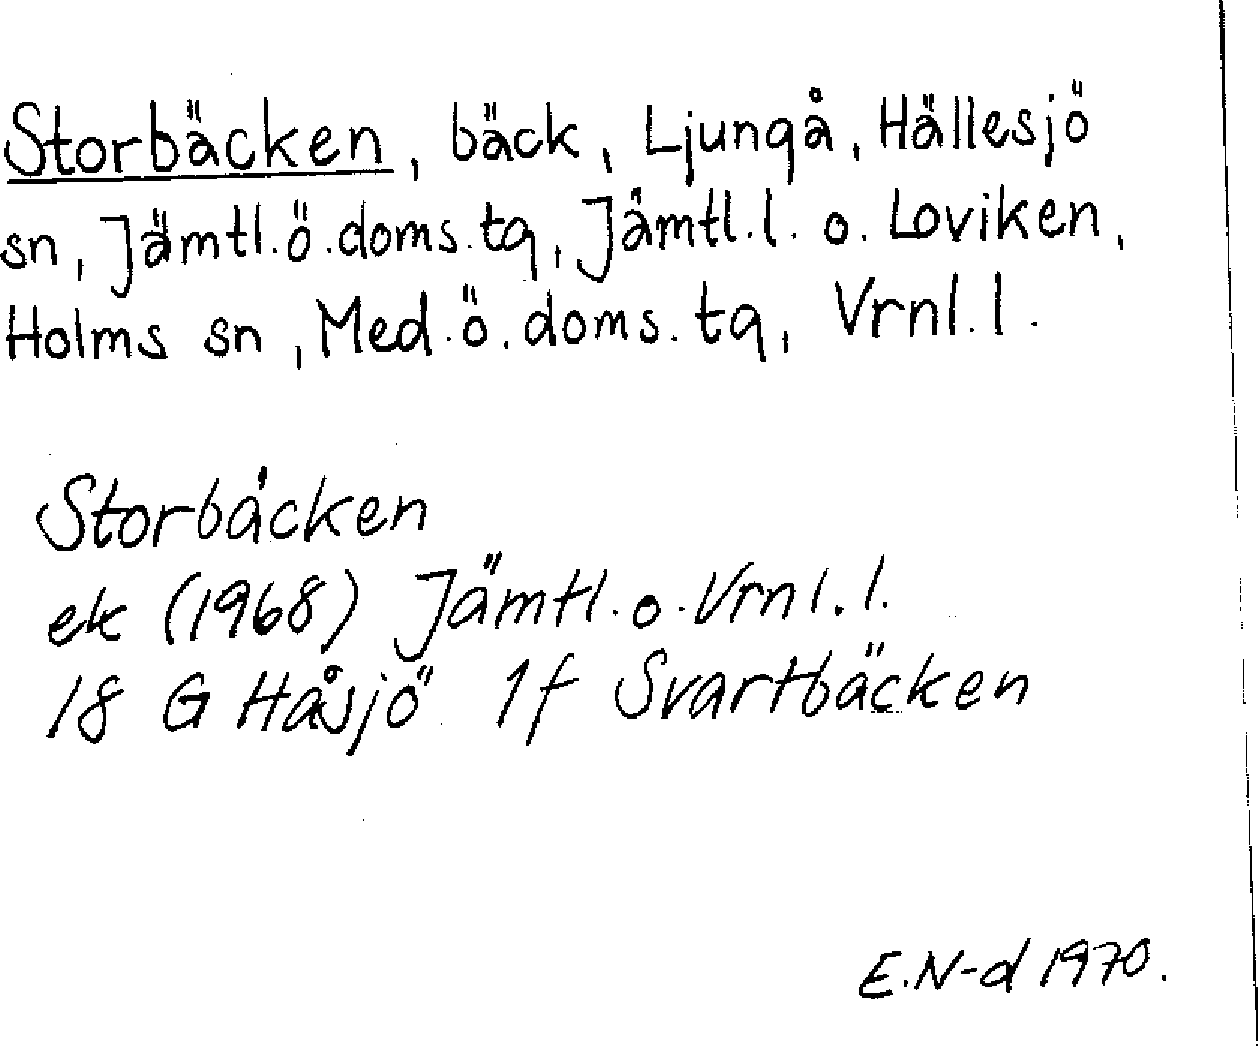 Storbäcken, bäck, Ljungå, Hällesjö
sn, Jämtl.ö.doms.tg, Jämtl.l. o. Loviken,
Holms sn, Med.ö.doms.tg, Vrnl.l.
Storbäcken
ek (1968) Jämtl.o.Vrnl.l.
18 G Håsjö 1f Svartbäcken
E.N-d 1970.